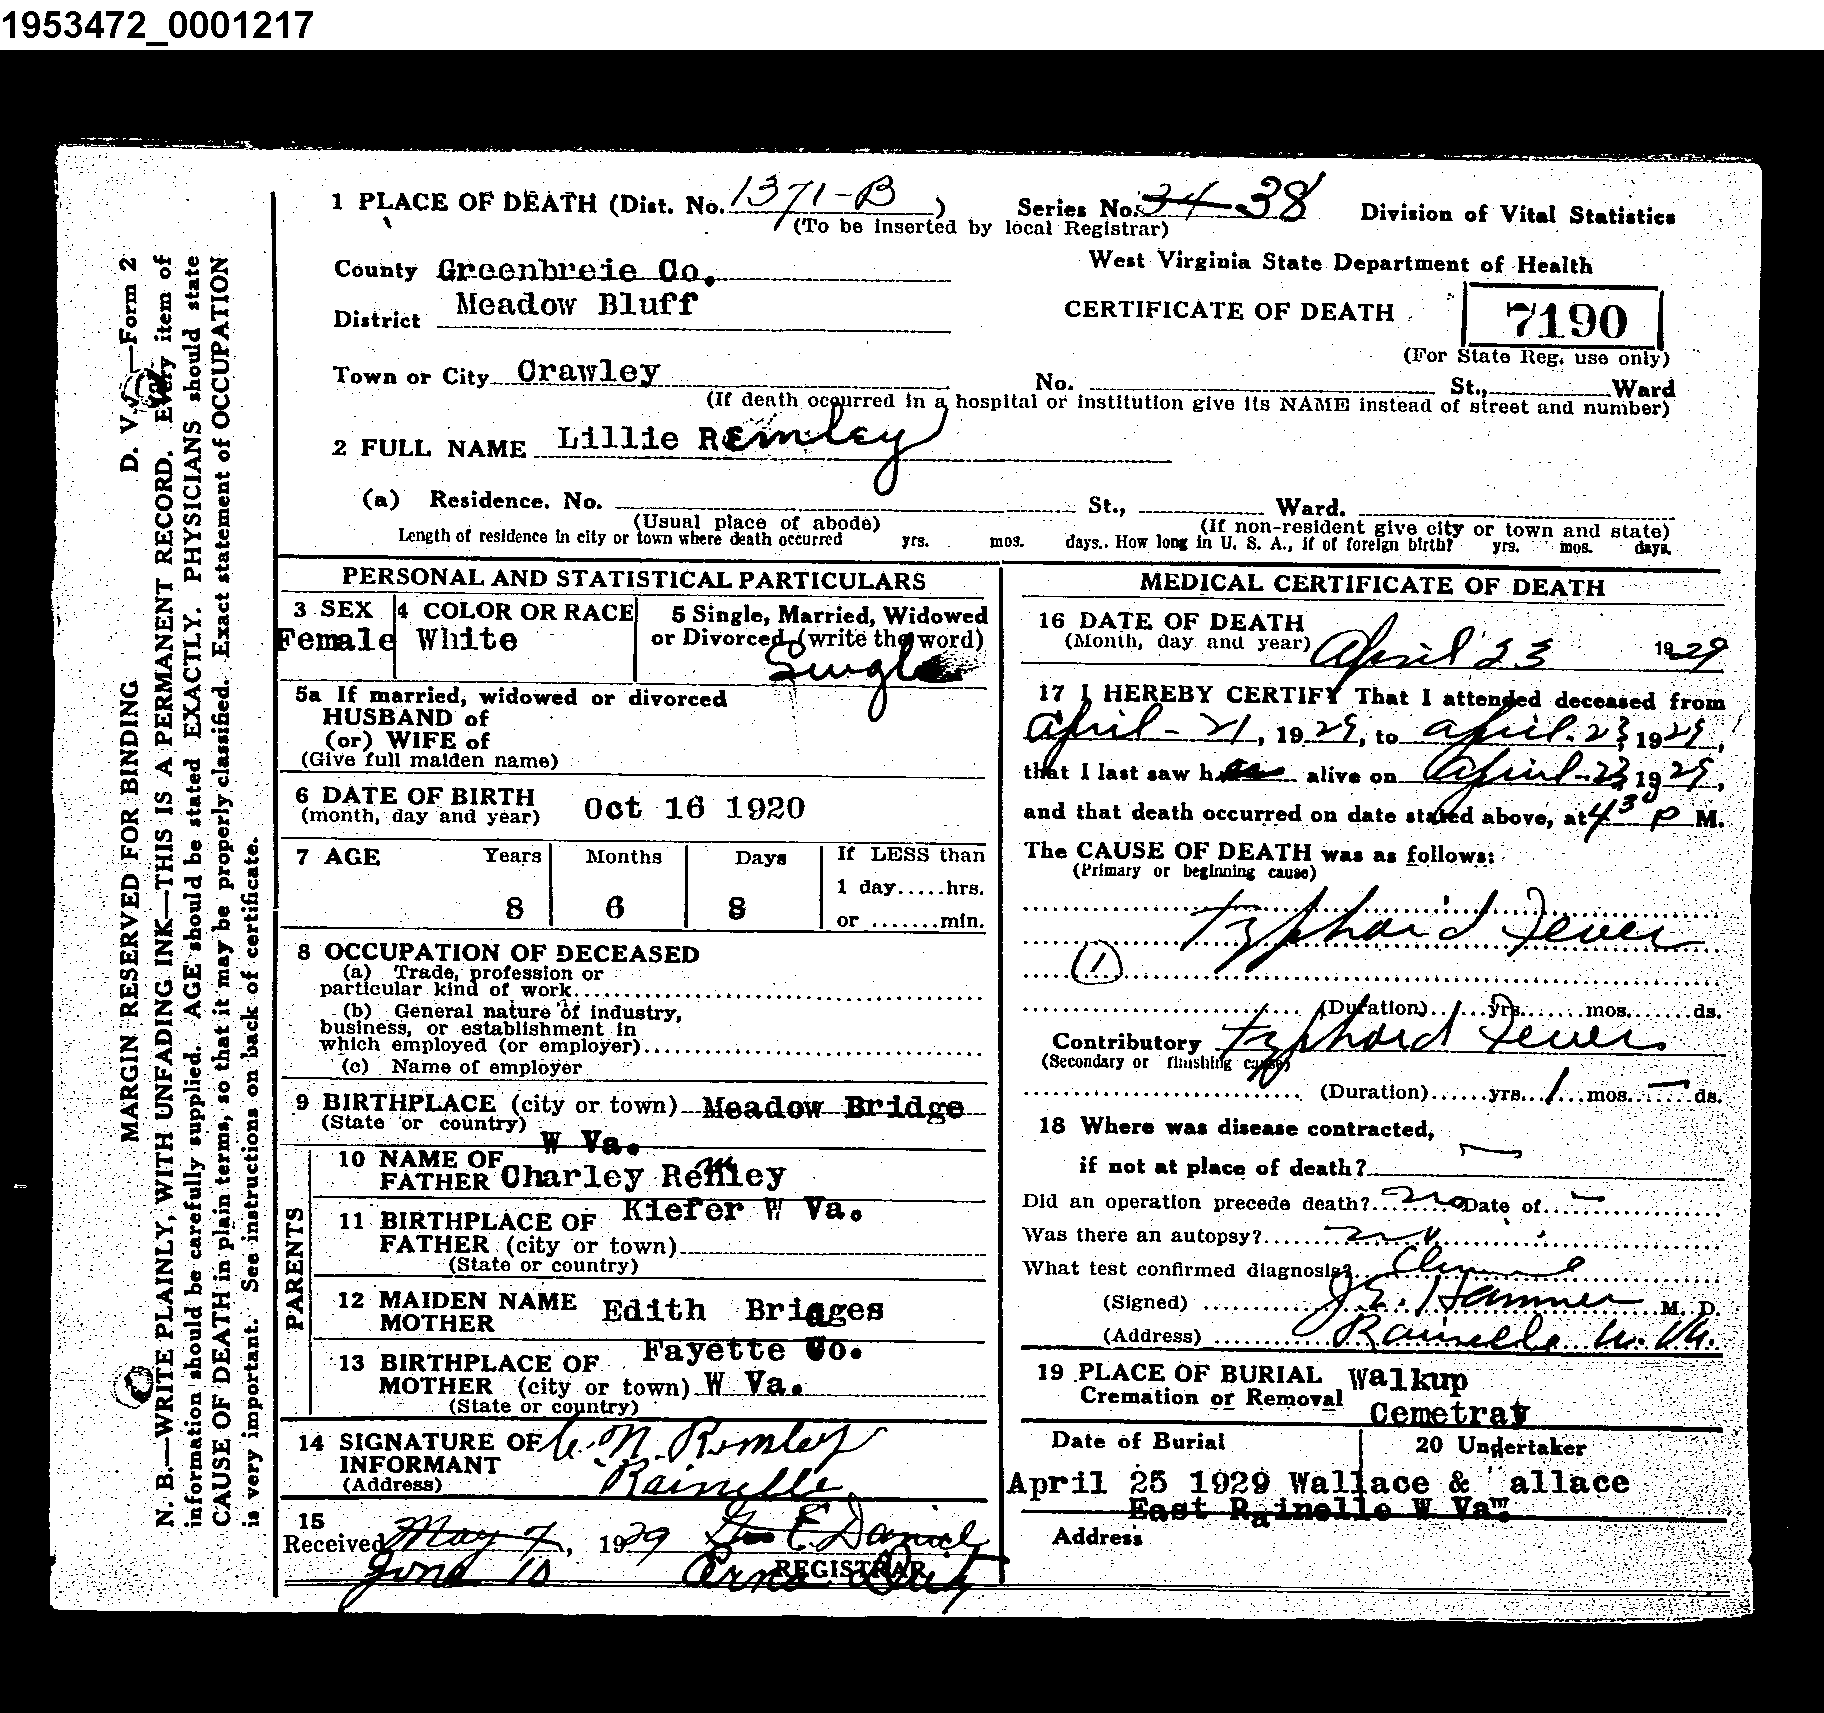 1953472_0001217
1 PLACE OF DEATH (Dist. No. 1371-B )
Series No. 34 38
Division of Vital Statistics
(To be inserted by local Registrar)
County Greenbreie Co.
West Virginia State Department of Health
District Meadow Bluff
CERTIFICATE OF DEATH
7190
(For State Reg. use only)
Town or City Crawley
No. St., Ward
(If death occurred in a hospital or institution give its NAME instead of street and number)
2 FULL NAME Lillie Remley
(a) Residence. No. St., Ward.
(Usual place of abode)
(If non-resident give city or town and state)
Length of residence in city or town where death occurred yrs. mos. days. How long in U. S. A., if of foreign birth? yrs. mos. days.
PERSONAL AND STATISTICAL PARTICULARS
3 SEX
Female
4 COLOR OR RACE
White
5 Single, Married, Widowed
or Divorced (write the word)
Single
5a If married, widowed or divorced
HUSBAND of
(or) WIFE of
(Give full maiden name)
6 DATE OF BIRTH
(month, day and year) Oct 16 1920
7 AGE Years Months Days If LESS than
1 day.....hrs.
8 6 8 or .......min.
8 OCCUPATION OF DECEASED
(a) Trade, profession or
particular kind of work
(b) General nature of industry,
business, or establishment in
which employed (or employer)
(c) Name of employer
9 BIRTHPLACE (city or town) Meadow Bridge
(State or country) W Va.
PARENTS
10 NAME OF
FATHER Charley Remley
11 BIRTHPLACE OF Kiefer W Va.
FATHER (city or town)
(State or country)
12 MAIDEN NAME Edith Bridges
MOTHER
13 BIRTHPLACE OF Fayette Co.
MOTHER (city or town) W Va.
(State or country)
14 SIGNATURE OF C. N. Remley
INFORMANT
(Address) Rainelle
15
Received May 7, 1929 Geo E. Daniel
REGISTRAR
June 10
MEDICAL CERTIFICATE OF DEATH
16 DATE OF DEATH
(Month, day and year) April 23 1929
17 I HEREBY CERTIFY That I attended deceased from
April - 21, 1929, to April. 23, 1929,
that I last saw h alive on April-23, 1929,
and that death occurred on date stated above, at 4 30 P M.
The CAUSE OF DEATH was as follows:
(Primary or beginning cause)
Typhoid Fever
1
(Duration) yrs. mos. ds.
Contributory Typhoid Fever
(Secondary or finishing cause)
(Duration)......yrs. 1 mos. — ds.
18 Where was disease contracted,
if not at place of death? —
Did an operation precede death? no Date of —
Was there an autopsy? no
What test confirmed diagnosis? Clinical
(Signed) J.E. Hammer M. D.
(Address) Rainelle W. Va.
19 PLACE OF BURIAL Walkup
Cremation or Removal Cemetray
Date of Burial 20 Undertaker
April 25 1929 Wallace & allace
East Rainelle W Va.
Address
D. V. S.—Form 2
MARGIN RESERVED FOR BINDING
N. B.—WRITE PLAINLY, WITH UNFADING INK—THIS IS A PERMANENT RECORD. Every item of
information should be carefully supplied. AGE should be stated EXACTLY. PHYSICIANS should state
CAUSE OF DEATH in plain terms, so that it may be properly classified. Exact statement of OCCUPATION
is very important. See instructions on back of certificate.